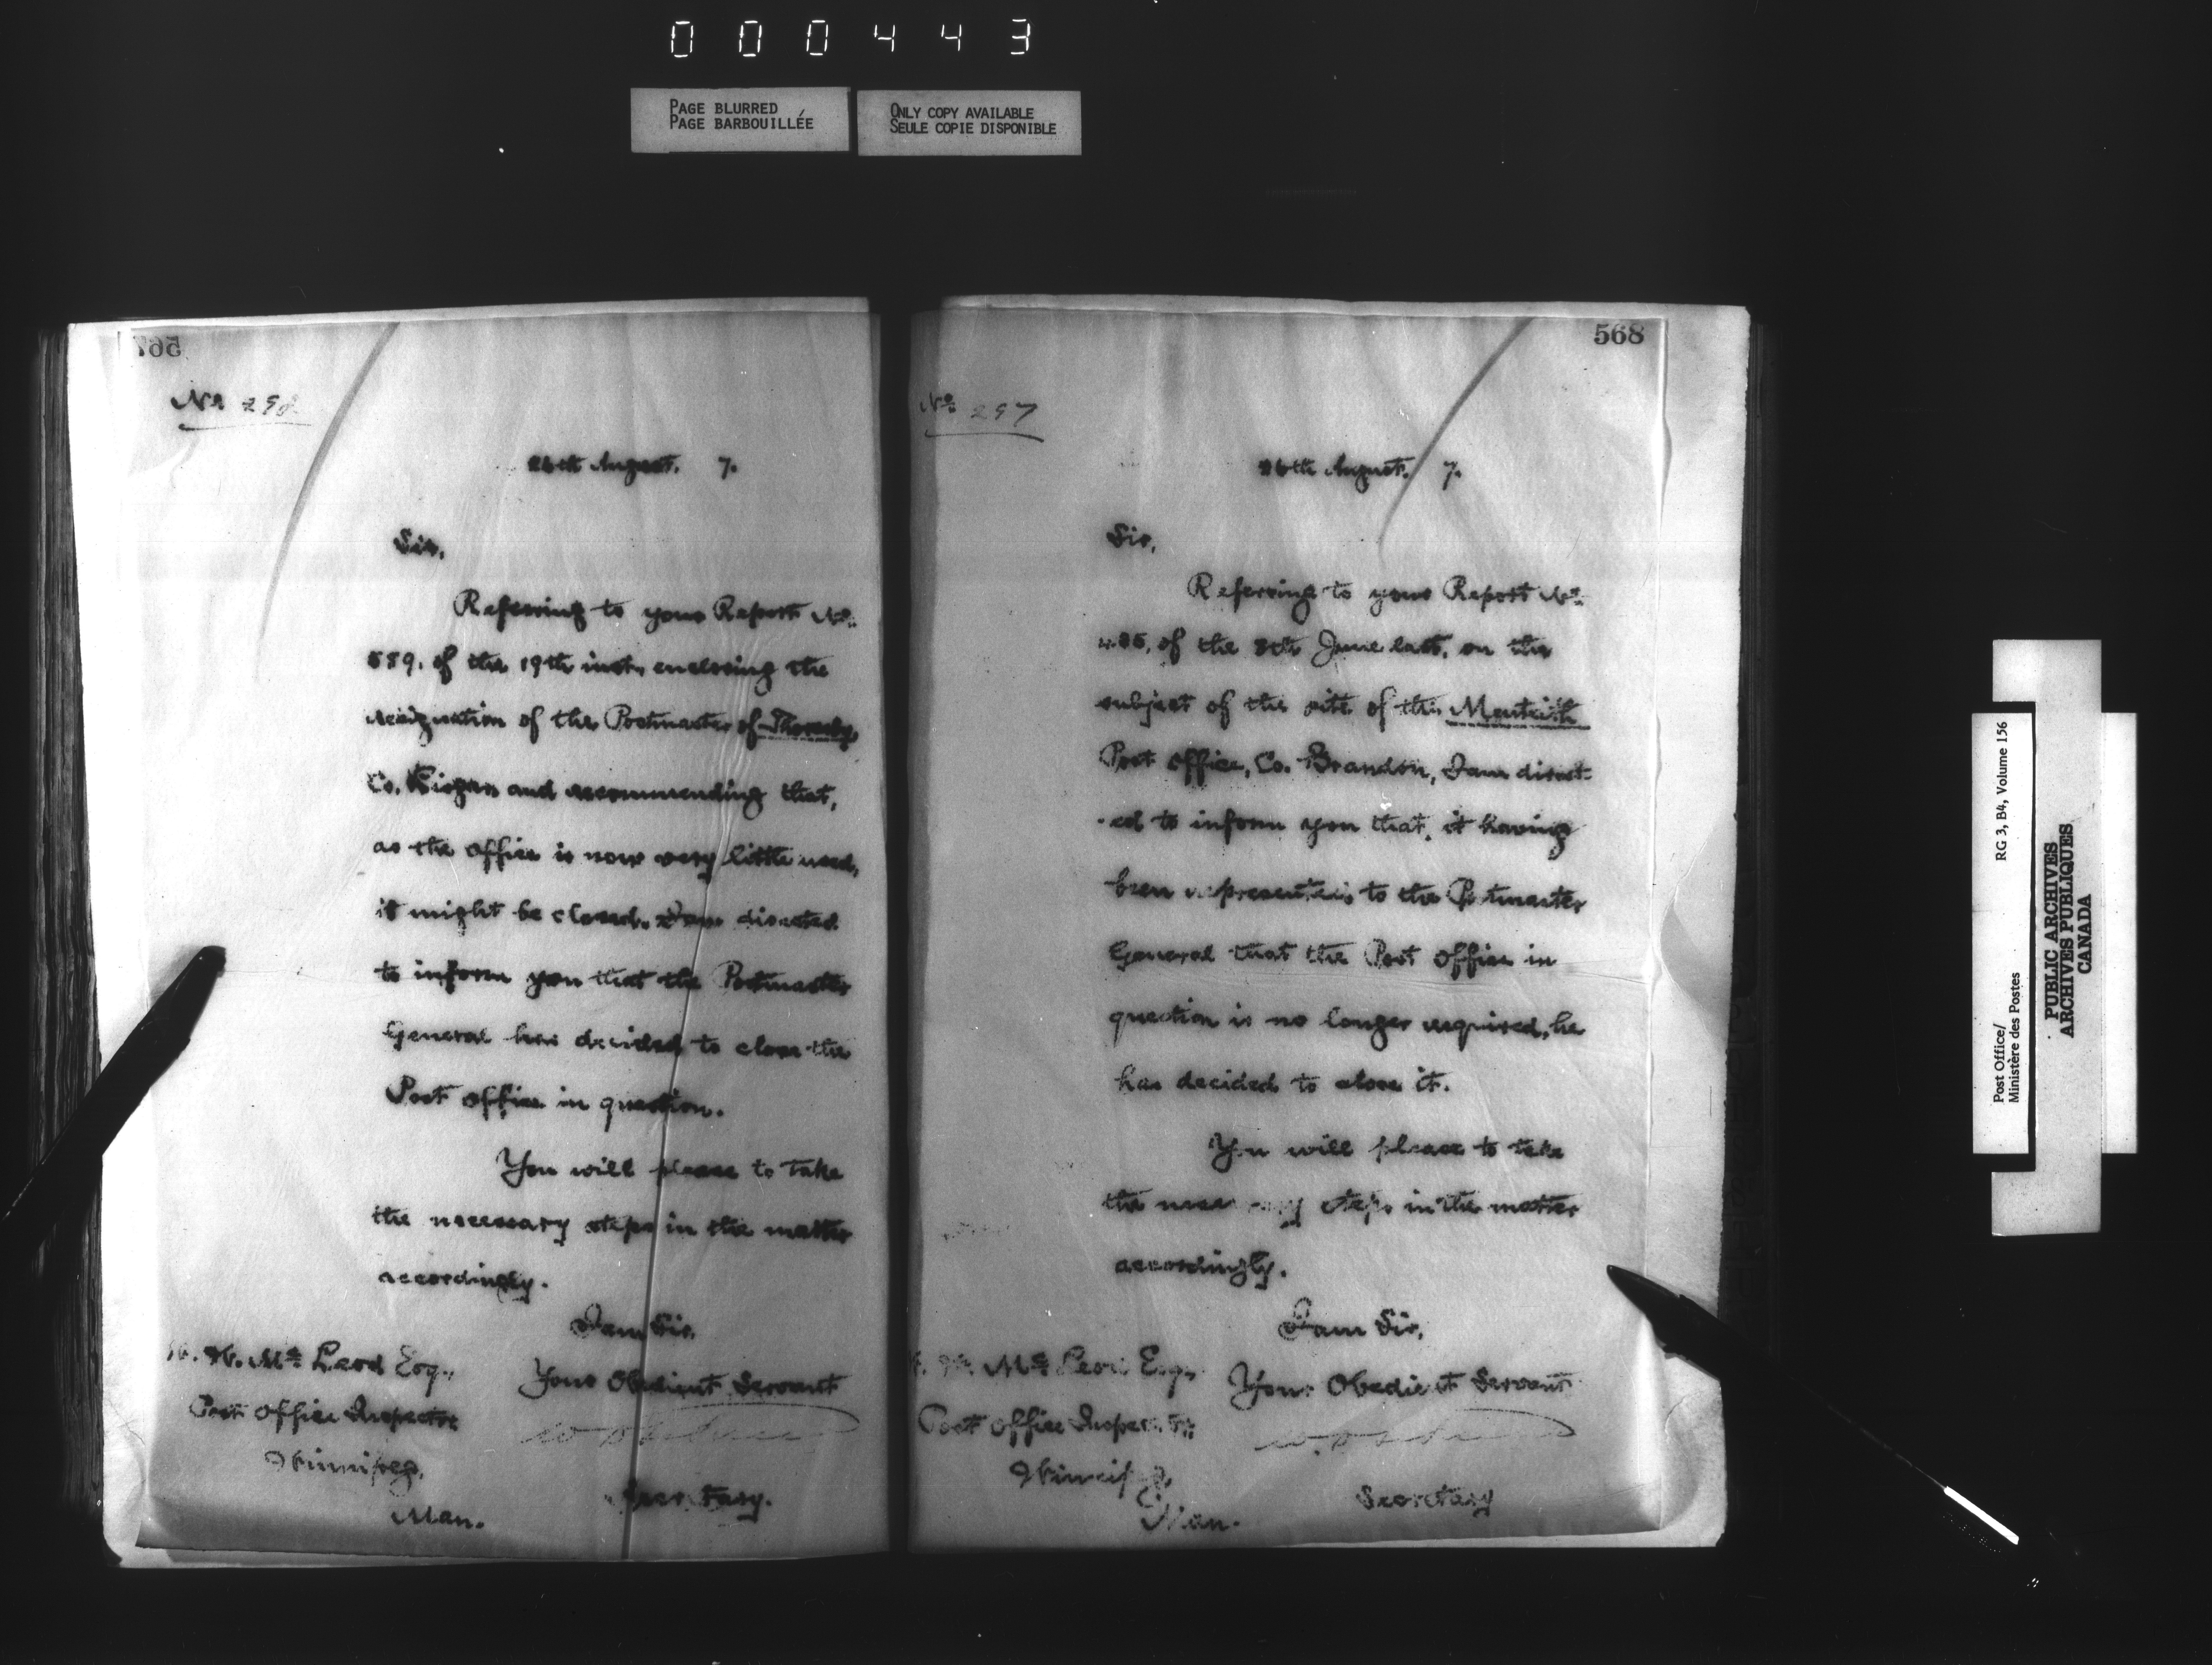 000443
PAGE BLURRED
PAGE BARBOUILLÉE
ONLY COPY AVAILABLE
SEULE COPIE DISPONIBLE
567
No
26th August. 7.
Sir,
Referring to your Report No.
589. of the 19th inst, enclosing the
resignation of the Postmaster of Thornby,
Co. and recommending that,
as the office is now very little used,
it might be closed. I am directed
to inform you that the Postmaster
General has decided to close the
Post Office in question.
You will please to take
the necessary steps in the matter
accordingly.
I am Sir,
Your Obedient Servant
Secretary.
W. W. McLeod Esq.,
Post Office Inspector
Winnipeg,
Man.
568
No 297
26th August. 7.
Sir,
Referring to your Report No.
of the 8th June last, on the
subject of the site of the Menteith
Post Office, Co. Brandon, I am direct-
-ed to inform you that, it having
been represented to the Postmaster
General that the Post Office in
question is no longer required, he
has decided to close it.
You will please to take
the necessary steps in the matter
accordingly.
I am Sir,
Your Obedient Servant
Secretary
W. W. McLeod Esq.,
Post Office Inspector
Winnipeg
Man.
Post Office/
Ministère des Postes
RG 3, B4, Volume 156
PUBLIC ARCHIVES
ARCHIVES PUBLIQUES
CANADA